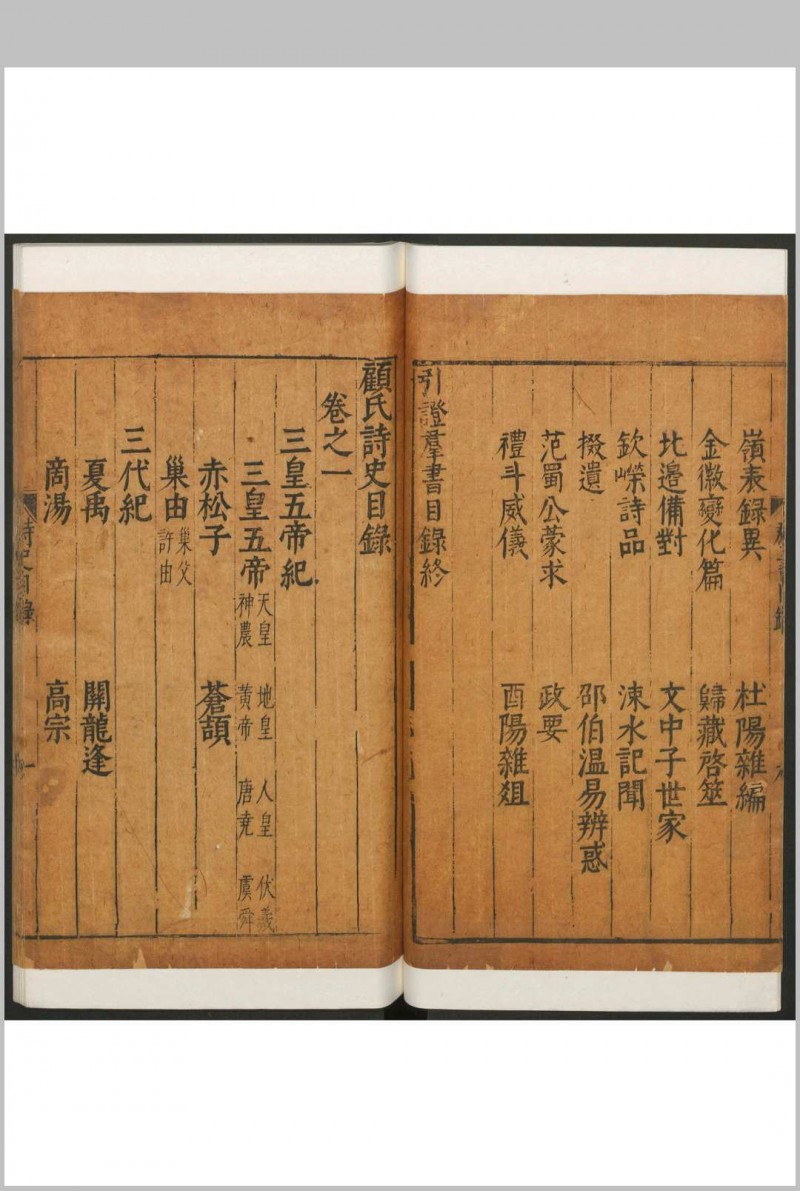 嶺表録異 杜陽雜編
金徽變化篇 歸藏啓筮
北邉備對 文中子世家
欽嶸詩品 涑水記聞
掇遺 邵伯温易辨惑
范蜀公蒙求 政要
禮斗威儀 酉陽雜爼
引證羣書目錄終
顧氏詩史目錄
卷之一
三皇五帝紀
三皇五帝 天皇 地皇 人皇 伏羲
神農 黄帝 唐尭 虞舜
赤松子 蒼頡
巢由 巢父
許由
三代紀
夏禹 關龍逢
商湯 高宗
詩史目錄 一